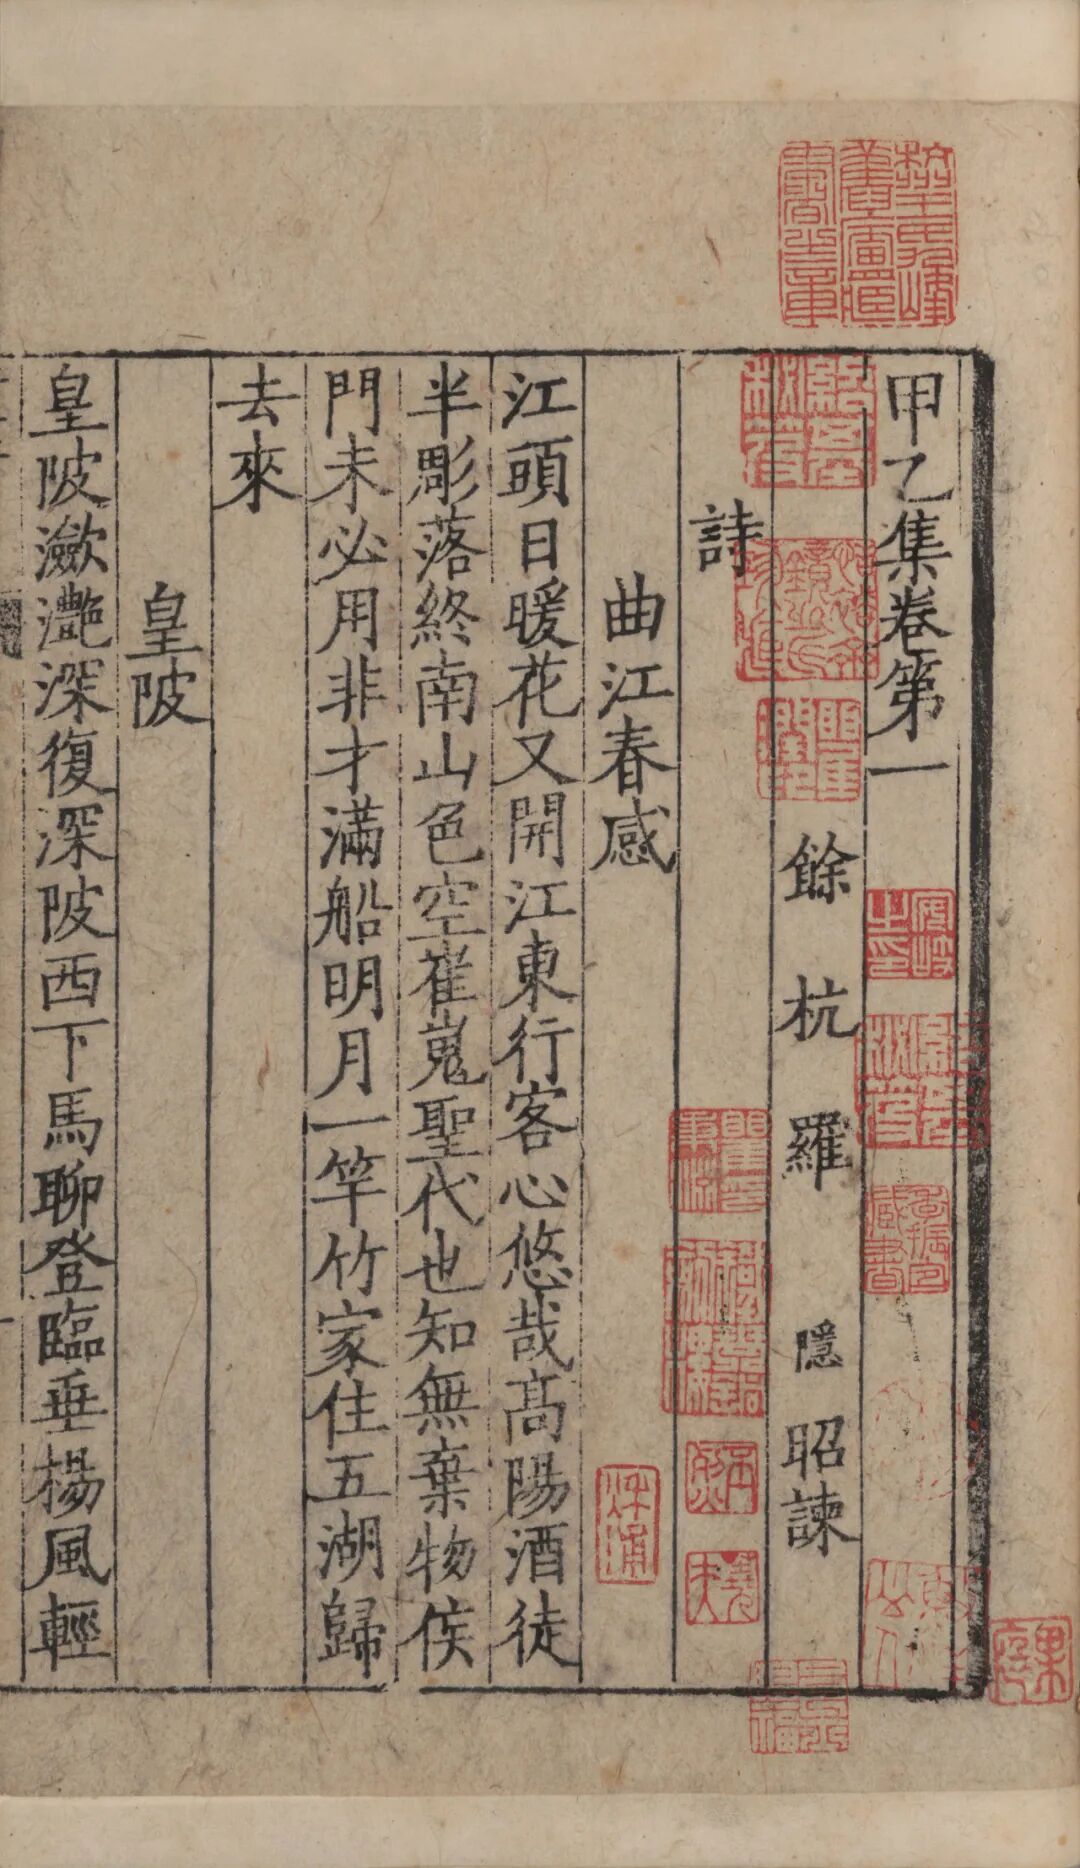 甲乙集卷第一
餘杭羅隱昭諫
詩
曲江春感
江頭日暖花又開江東行客心悠哉高陽酒徒
半彫落終南山色空崔嵬聖代也知無棄物侯
門未必用非才滿船明月一竿竹家住五湖歸
去來
皇陂
皇陂瀲灔深復深陂西下馬聊登臨垂楊風輕